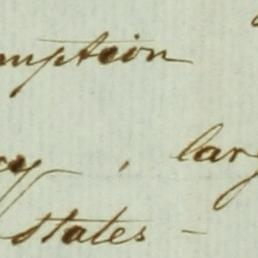 mption
cy , larg
States -